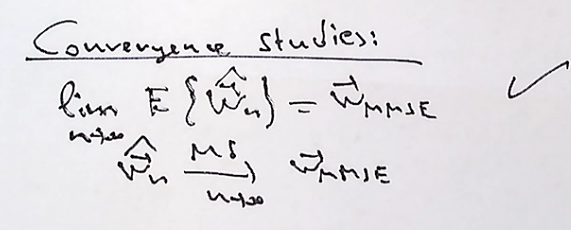 Convergence studies:
lim n→∞ E {ŵ⃗ₙ} = w⃗MMSE ✓
ŵ⃗ₙ MS→ n→∞ w⃗MMSE